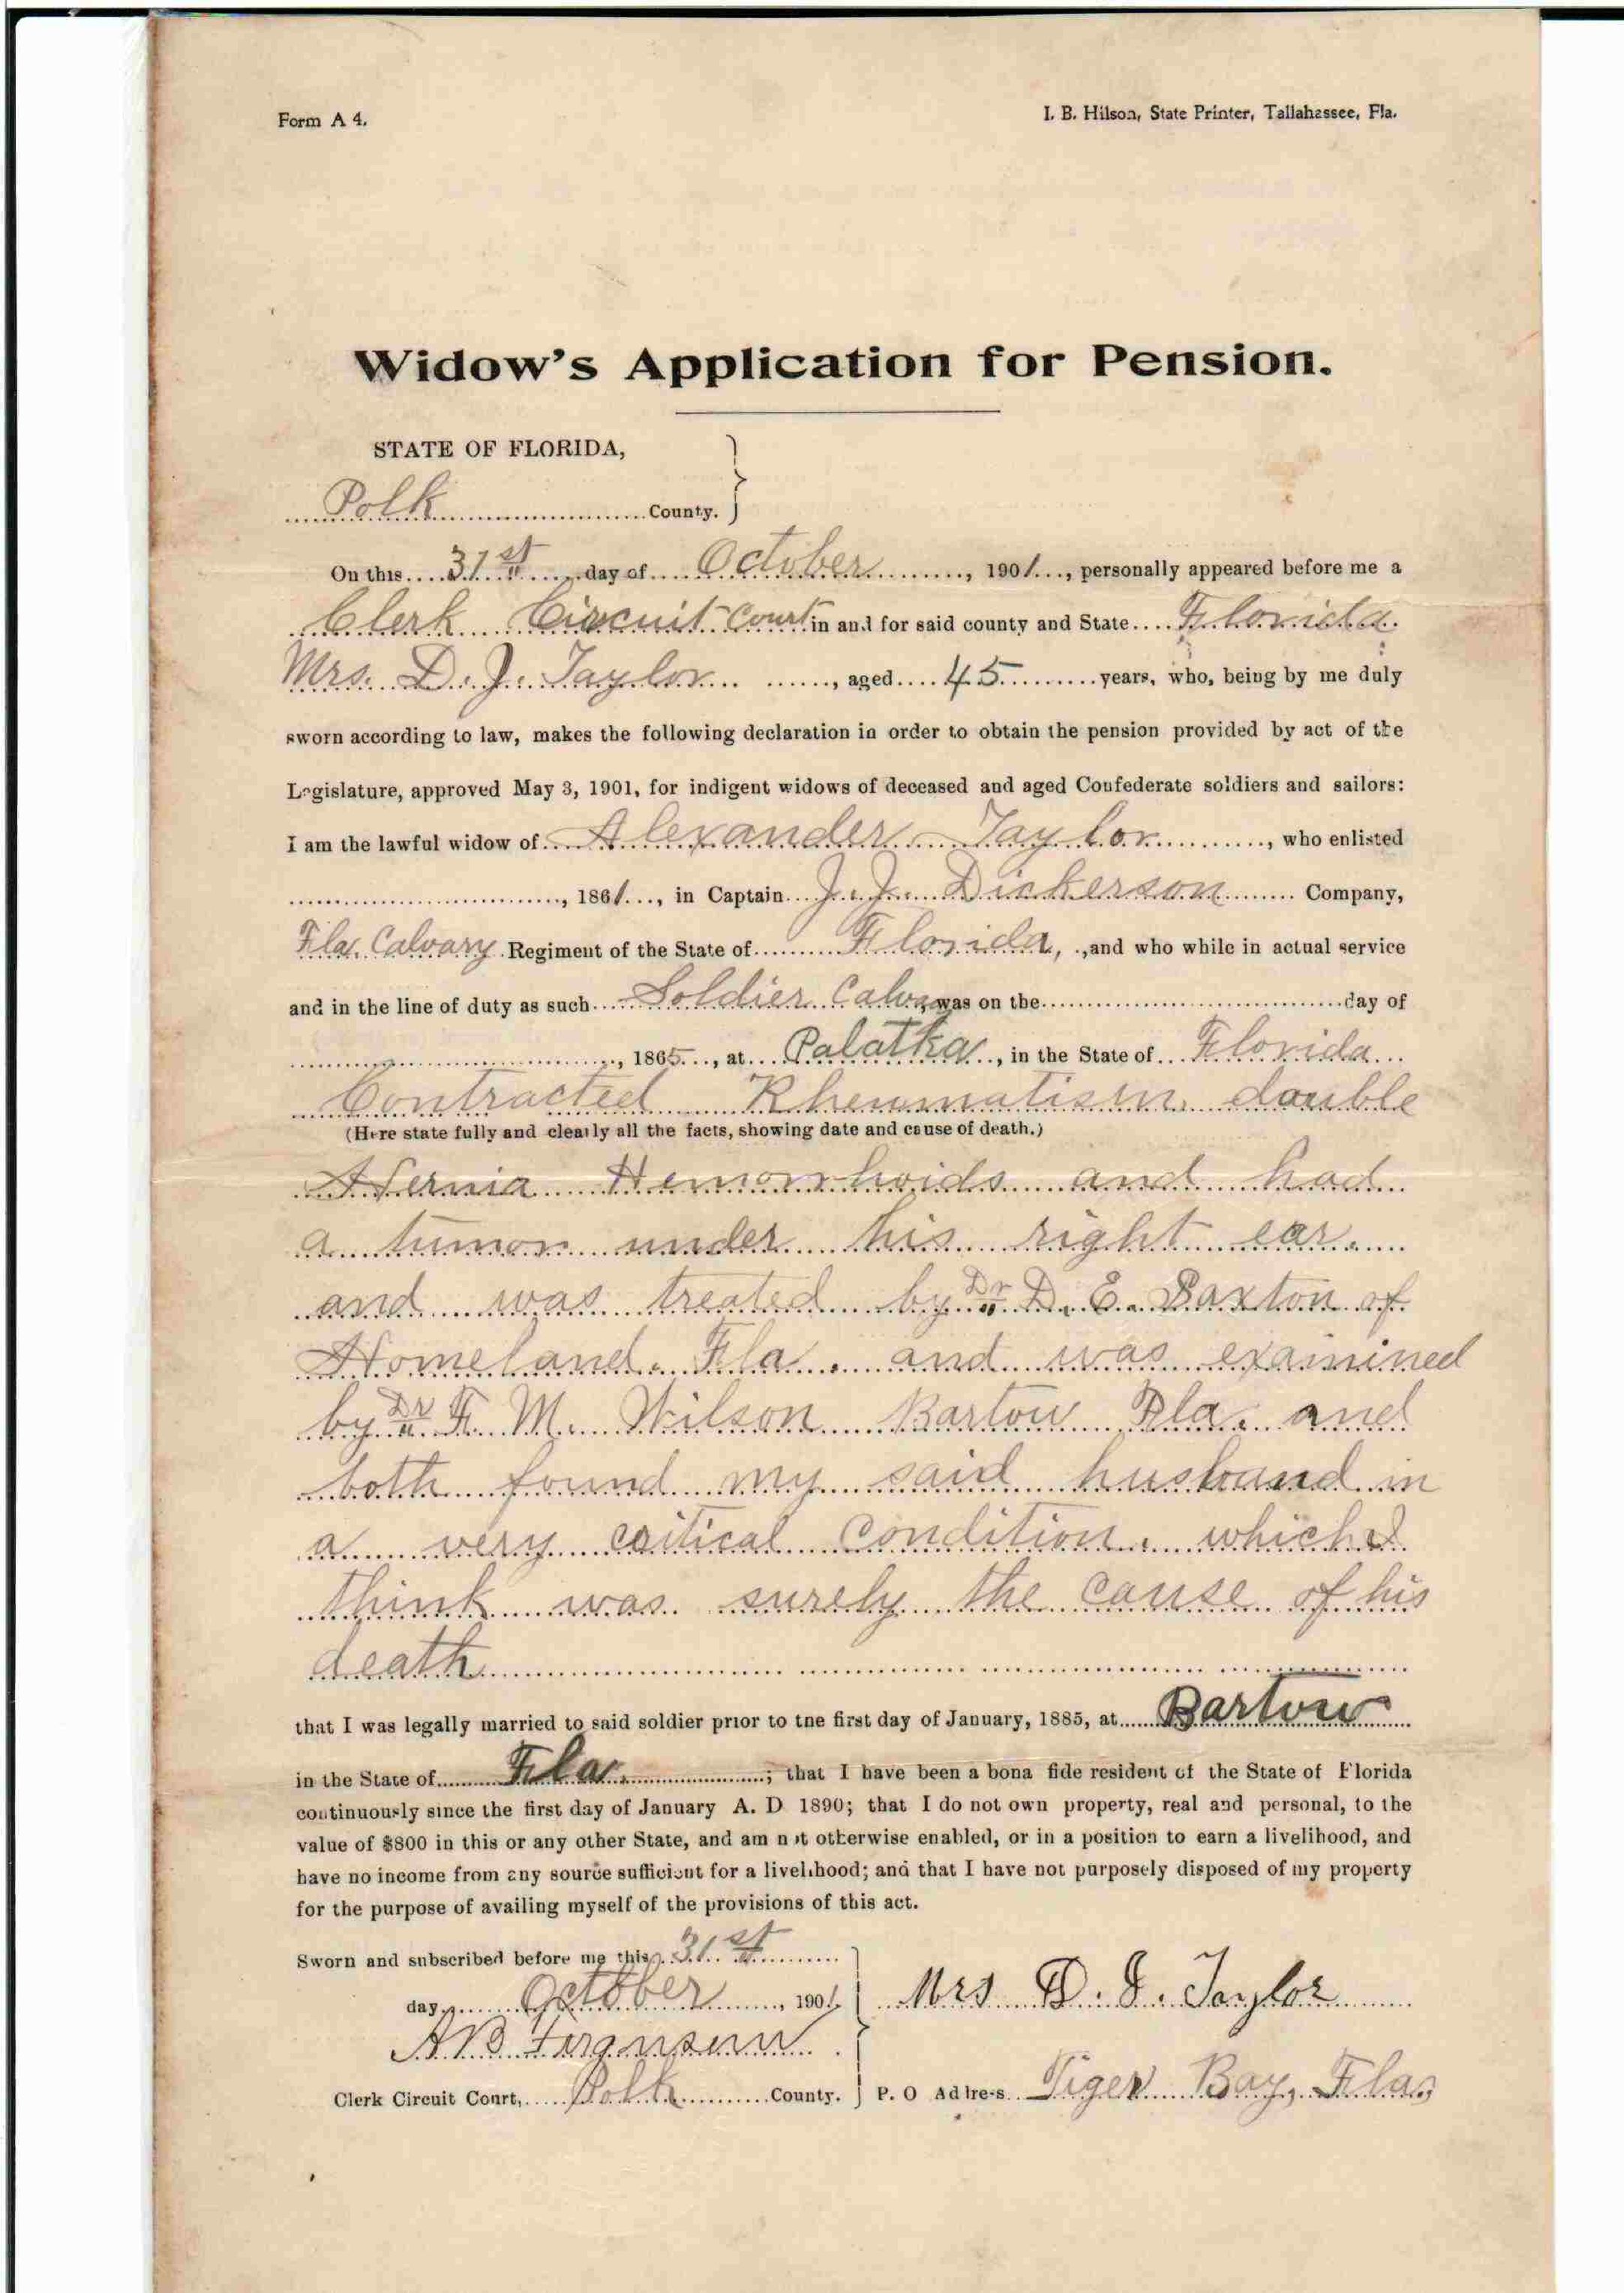 Form A 4.
I. B. Hilson, State Printer, Tallahassee, Fla.
Widow's Application for Pension.
STATE OF FLORIDA,
Polk County.
On this 31st day of October, 1901, personally appeared before me a
Clerk Circuit Court in and for said county and State Florida
Mrs. D. J. Taylor, aged 45 years, who, being by me duly
sworn according to law, makes the following declaration in order to obtain the pension provided by act of the
Legislature, approved May 3, 1901, for indigent widows of deceased and aged Confederate soldiers and sailors:
I am the lawful widow of Alexander Taylor, who enlisted
, 1861, in Captain J. J. Dickerson Company,
Fla. Calvary Regiment of the State of Florida, and who while in actual service
and in the line of duty as such Soldier Calvary was on the day of
, 1865, at Palatka, in the State of Florida
Contracted Rheumatism, double
(Here state fully and clearly all the facts, showing date and cause of death.)
Hernia Hemorrhoids and had
a tumor under his right ear.
and was treated by Dr D. E. Saxton of
Homeland. Fla. and was examined
by Dr F. M. Wilson Bartow Fla. and
both found my said husband in
a very critical condition. which I
think was surely the cause of his
death
that I was legally married to said soldier prior to the first day of January, 1885, at Bartow
in the State of Fla.; that I have been a bona fide resident of the State of Florida
continuously since the first day of January A. D 1890; that I do not own property, real and personal, to the
value of $800 in this or any other State, and am not otherwise enabled, or in a position to earn a livelihood, and
have no income from any source sufficient for a livelihood; and that I have not purposely disposed of my property
for the purpose of availing myself of the provisions of this act.
Sworn and subscribed before me this 31st
day October, 1901
Mrs D. J. Taylor
A B Fergusson
Clerk Circuit Court, Polk County.
P. O Address Tiger Bay, Fla,